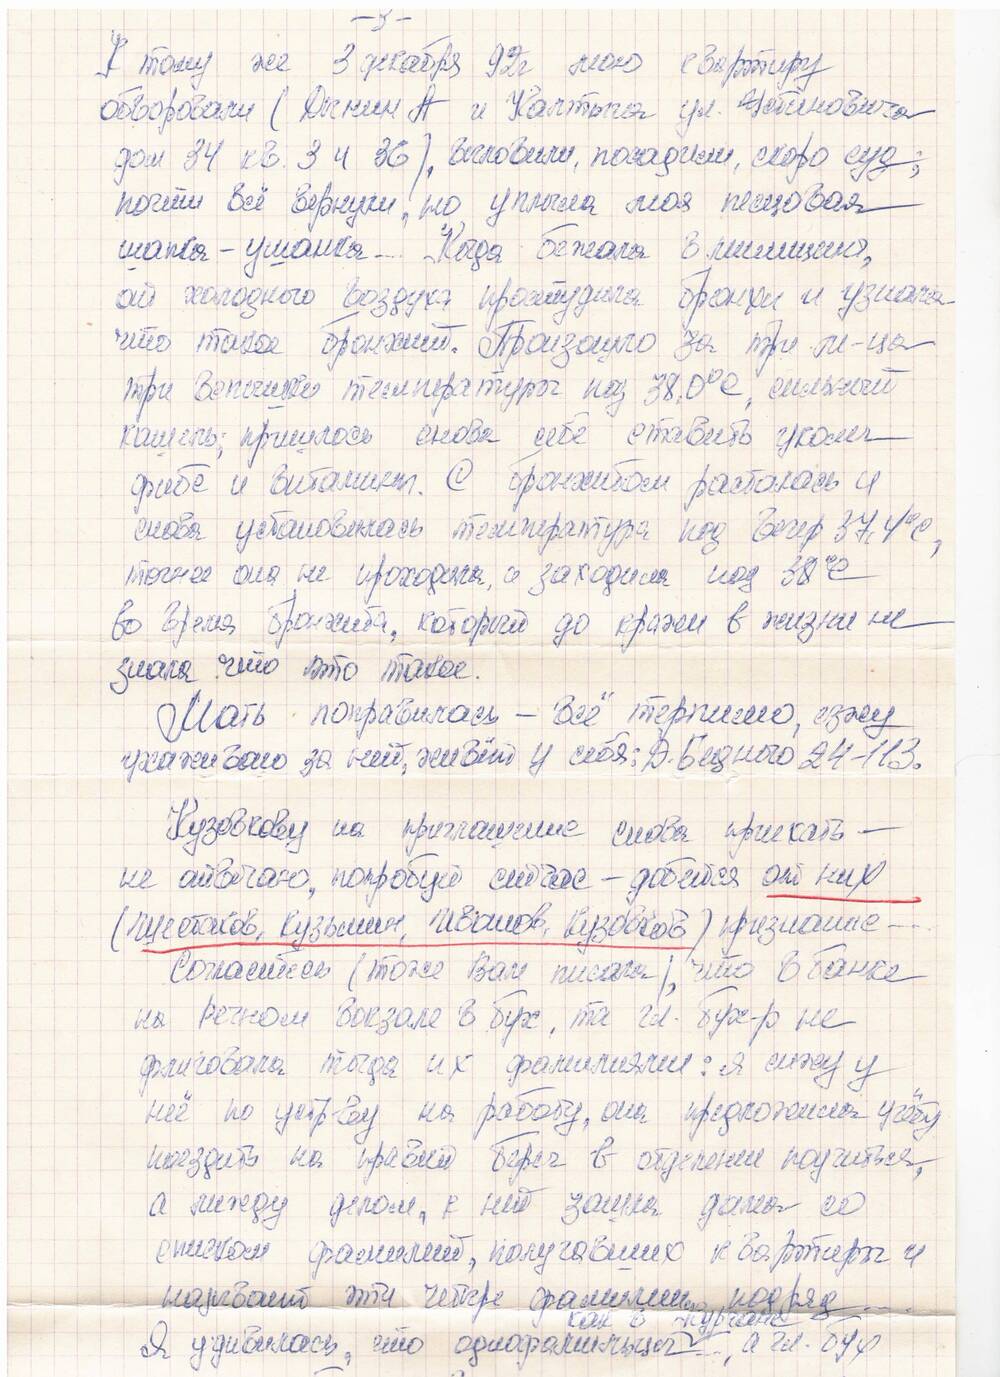 -5-
К тому же 3 декабря 92г мою квартиру
обворовали ( и ул. Устиновича
дом 34 кв. 3 и 36), выловили, посадили, скоро суд;
почти всё вернули, но уплыла моя песцовая
шапка-ушанка... Когда бежала в милицию,
от холодного воздуха простудила бронхи и узнала
что такое бронхит. Произошло за три м-ца
три вспышки температуры под 38,0°С, сильный
кашель; пришлось снова себе ставить уколы
и витамины. С бронхитом рассталась и
снова установилась температура под вечер 37,4°С,
точнее она не проходила, а заходила под 38°С
во время бронхита, который до кражи в жизни не
знала что это такое.
Мать поправилась - всё терпимо, езжу
ухаживаю за ней, живёт у себя: Д. Бедного 24-113.
Кузовкову на приглашение снова приехать -
не отвечаю, попробуй сейчас - добейся от них
(Шестаков, Кузьмин, Иванов, Кузовков) признание -...
Согласитесь (тоже Вам писала), что в банке
на Речном вокзале в бух, та гл. бух-р не
фиговала тогда их фамилиями: я сижу у
неё по устр-ву на работу, она предложила учёбу
поездить на правый берег в отделение поучиться,
а между делом, к ней зашла дама со
списком фамилий, получавших квартиры и
называет эти четыре фамилии подряд ...
как в Кургане
Я удивилась, что однофамильцы ..., а гл. бух